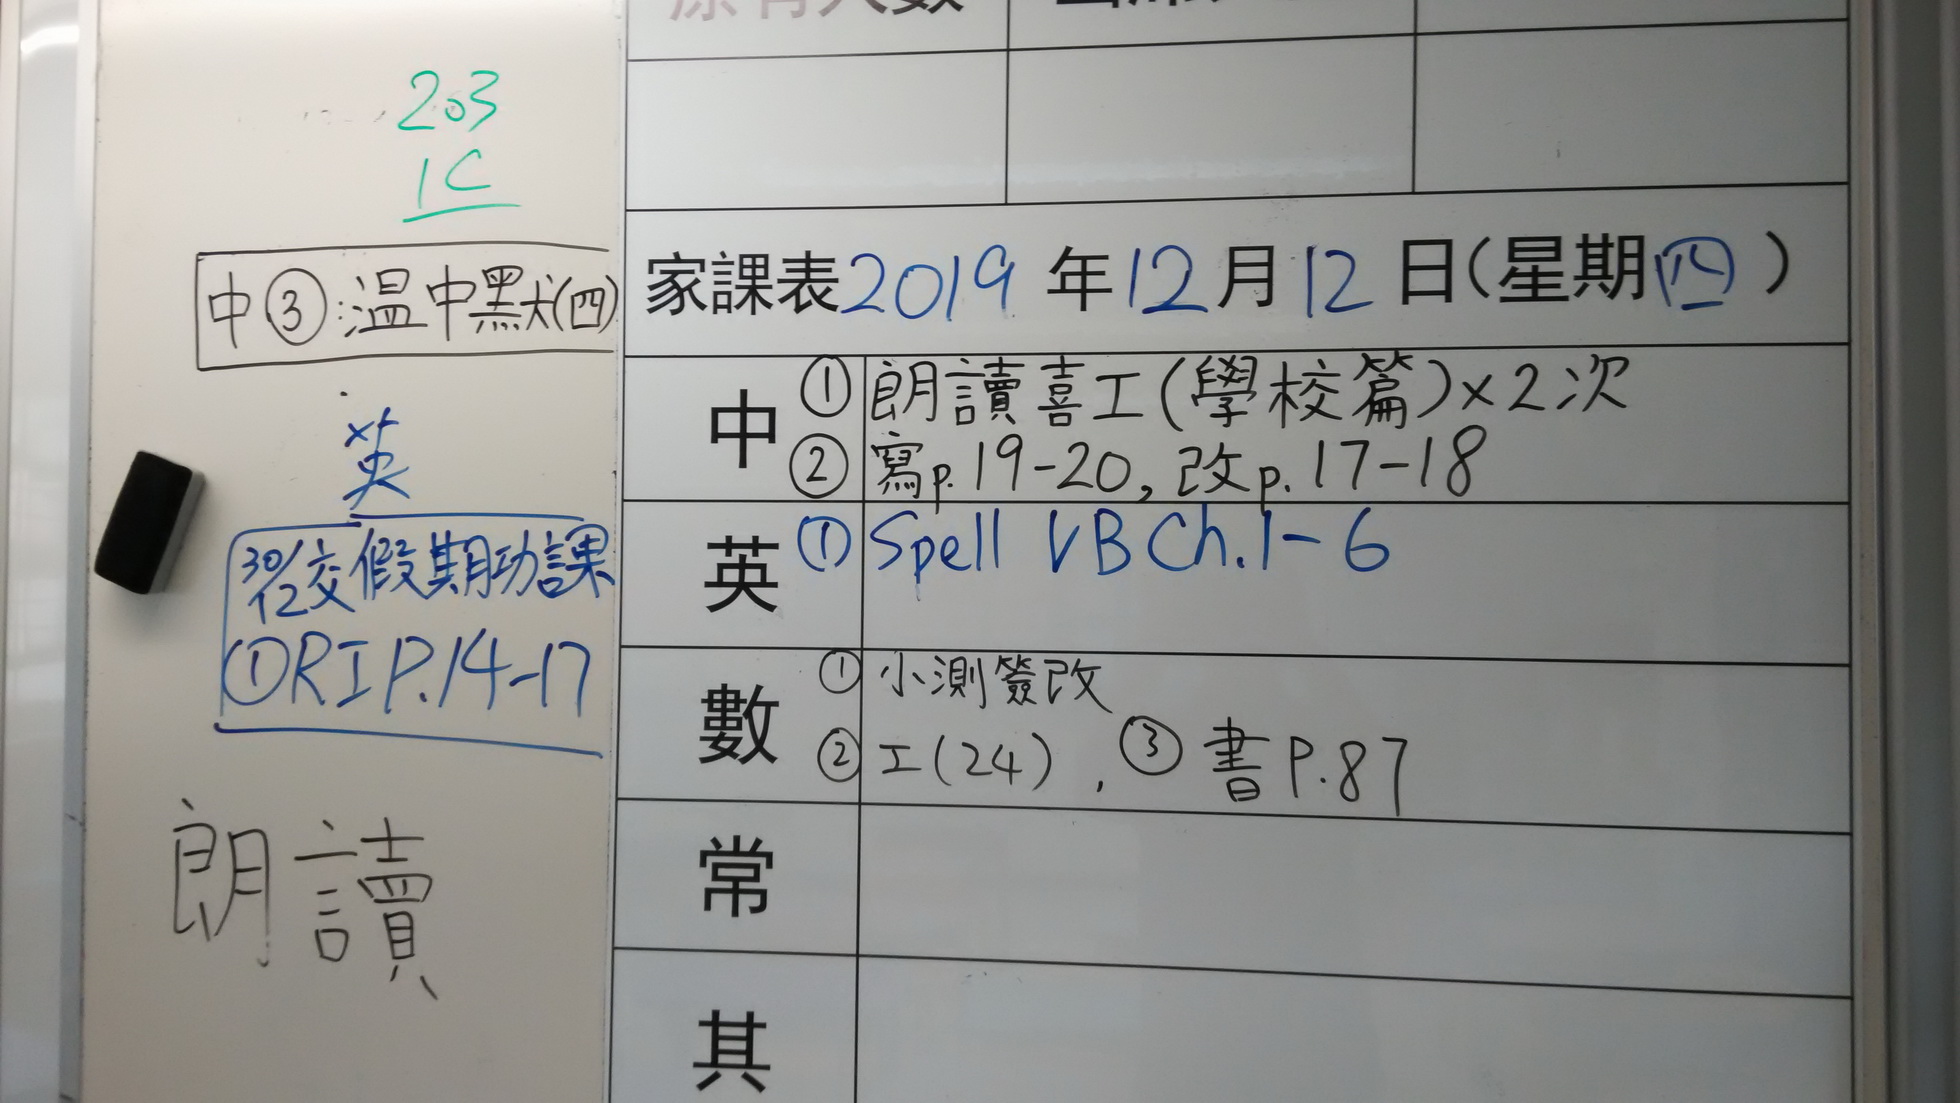 203
1C
中③:溫中默(四)
英
30/12交假期功課
①RI P.14-17
朗讀
原有人數
家課表2019年12月12日(星期四)
中 ①朗讀喜工(學校篇)×2次
②寫p.19-20,改p.17-18
英 ①Spell VB Ch.1-6
數 ①小測簽改
②工(24),③書P.87
常
其